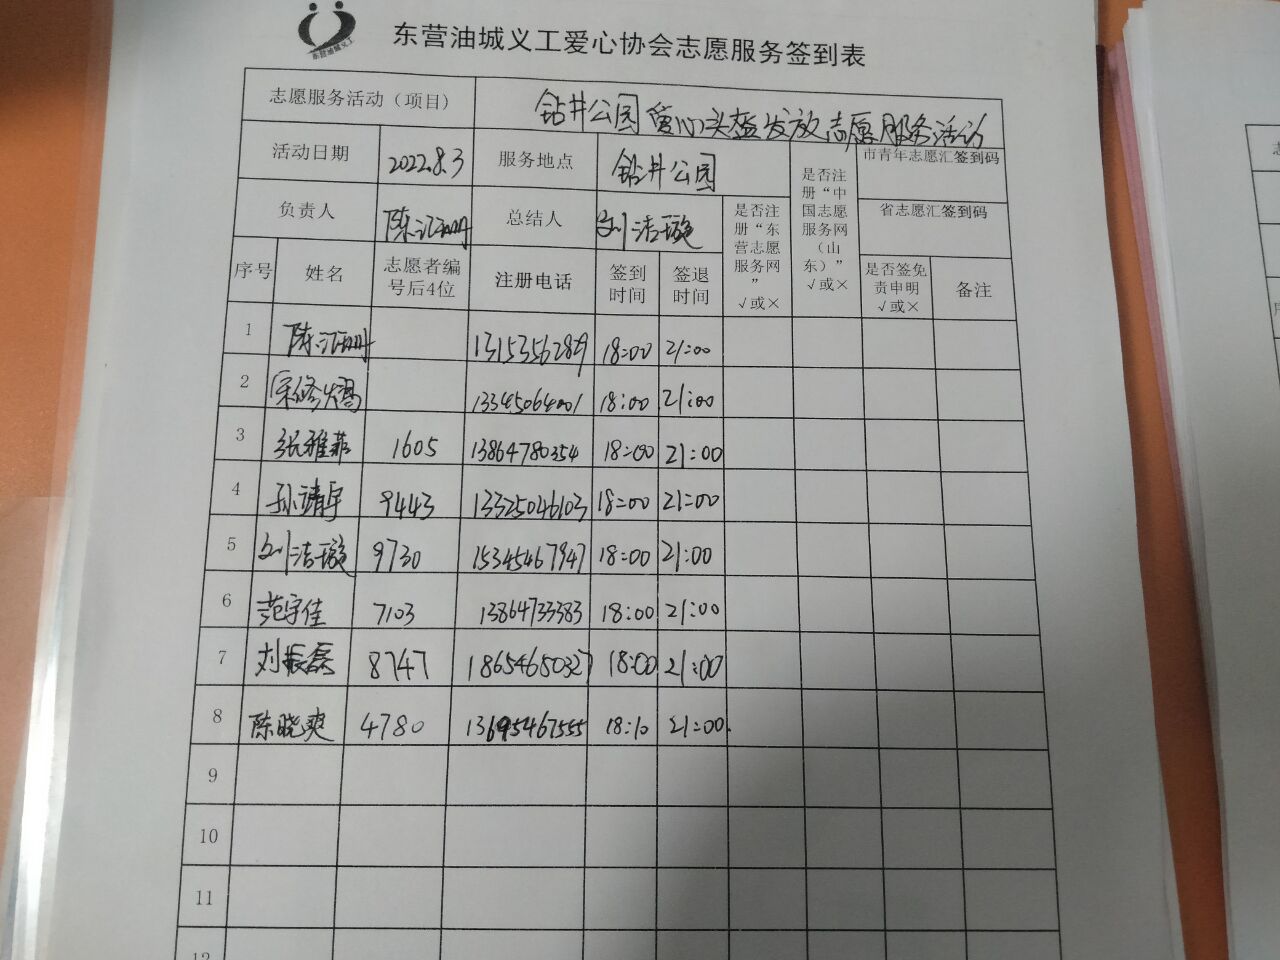 东营油城义工
东营油城义工爱心协会志愿服务签到表
志愿服务活动（项目） 钻井公园爱心头盔发放志愿服务活动
活动日期 2022.8.3 服务地点 钻井公园 是否注册“东营志愿服务网” √或× 是否注册“中国志愿服务网（山东）” √或× 市青年志愿汇签到码
负责人 陈江珊 总结人 刘洁璇 省志愿汇签到码
序号 姓名 志愿者编号后4位 注册电话 签到时间 签退时间 是否签免责申明 √或× 备注
1 陈江珊 13153562829 18:00 21:00
2 宋修 13345064001 18:00 21:00
3 张雅菲 1605 13864780354 18:00 21:00
4 孙靖宇 9443 13325046103 18:00 21:00
5 刘洁璇 9730 15345467947 18:00 21:00
6 范宇佳 7103 13864733383 18:00 21:00
7 刘振磊 8747 18654650327 18:00 21:00
8 陈晓爽 4780 13695467555 18:10 21:00.
9
10
11
12